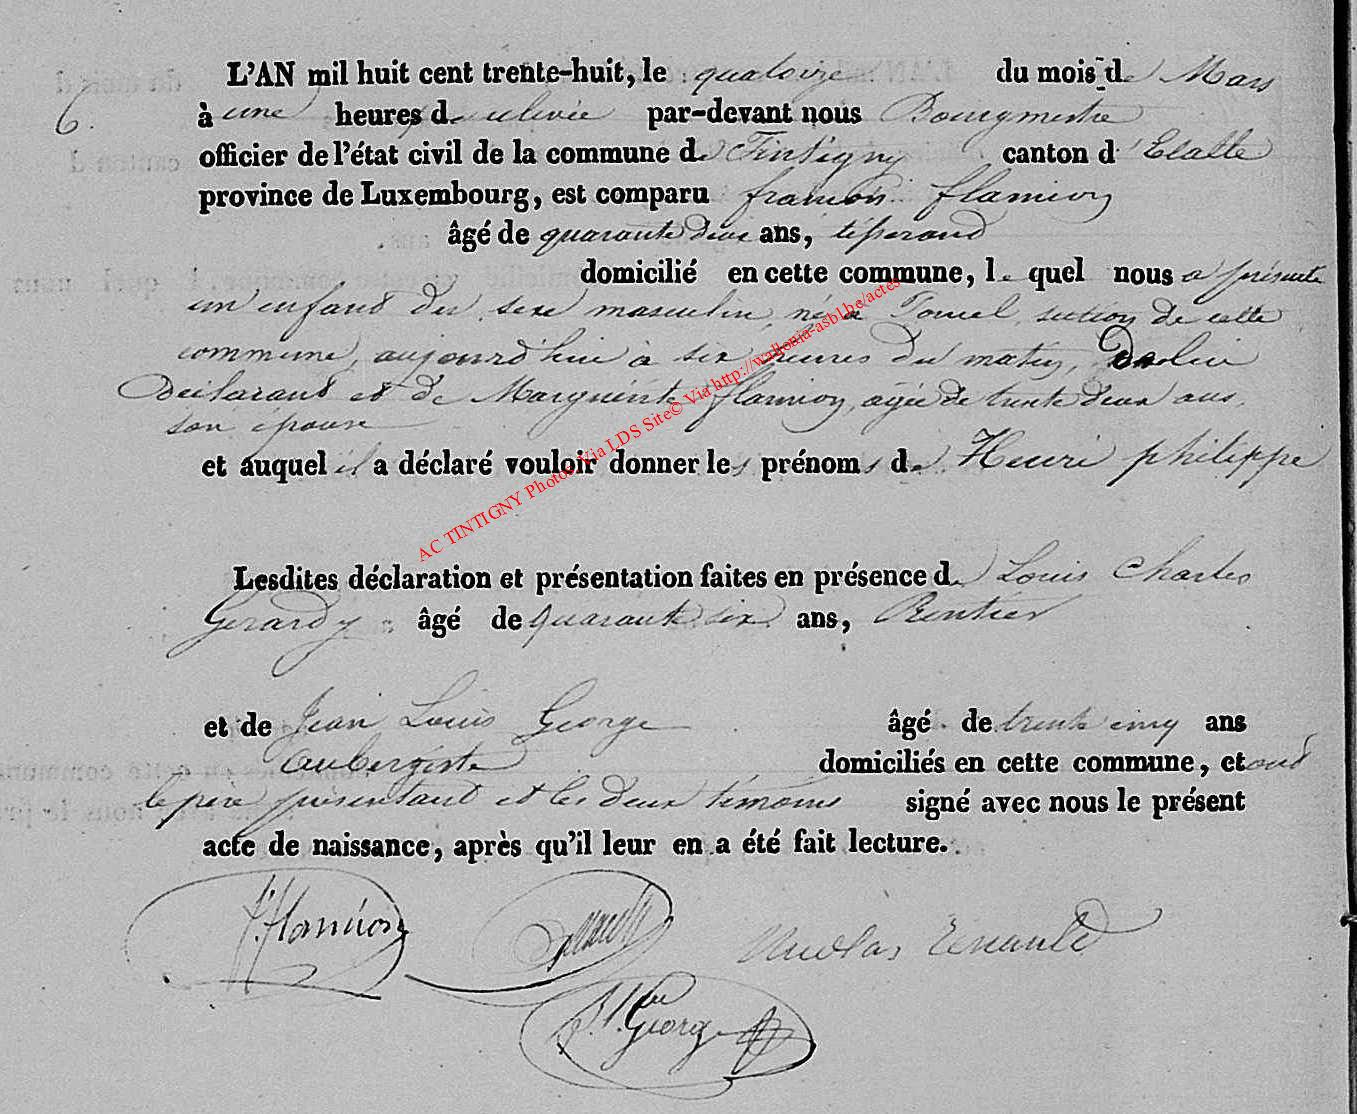 L'AN mil huit cent trente-huit, le quatorze du mois de Mars
6. à une heures de relevée par-devant nous Bourgmestre
officier de l'état civil de la commune de Tintigny canton d'Etalle
province de Luxembourg, est comparu françois flamion
âgé de quarante deux ans, tisserand
domicilié en cette commune, le quel nous a présenté
un enfant du sexe masculin, né à section de cette
commune, aujourd'hui à six heures du matin, de lui
déclarant et de Marguerite flamion, agée de trente deux ans,
son épouse
et auquel il a déclaré vouloir donner les prénoms de Henri philippe
Lesdites déclaration et présentation faites en présence de Louis Charles
Gerardy âgé de quarante six ans, Rentier
et de Jean Louis George âgé de trente cinq ans
aubergiste domiciliés en cette commune, et ont
le père présentant et les deux témoins signé avec nous le présent
acte de naissance, après qu'il leur en a été fait lecture.
f. flamion Nicolas
J. L. George
AC TINTIGNY Photos Via LDS Site© Via http://wallonia-asbl.be/actes